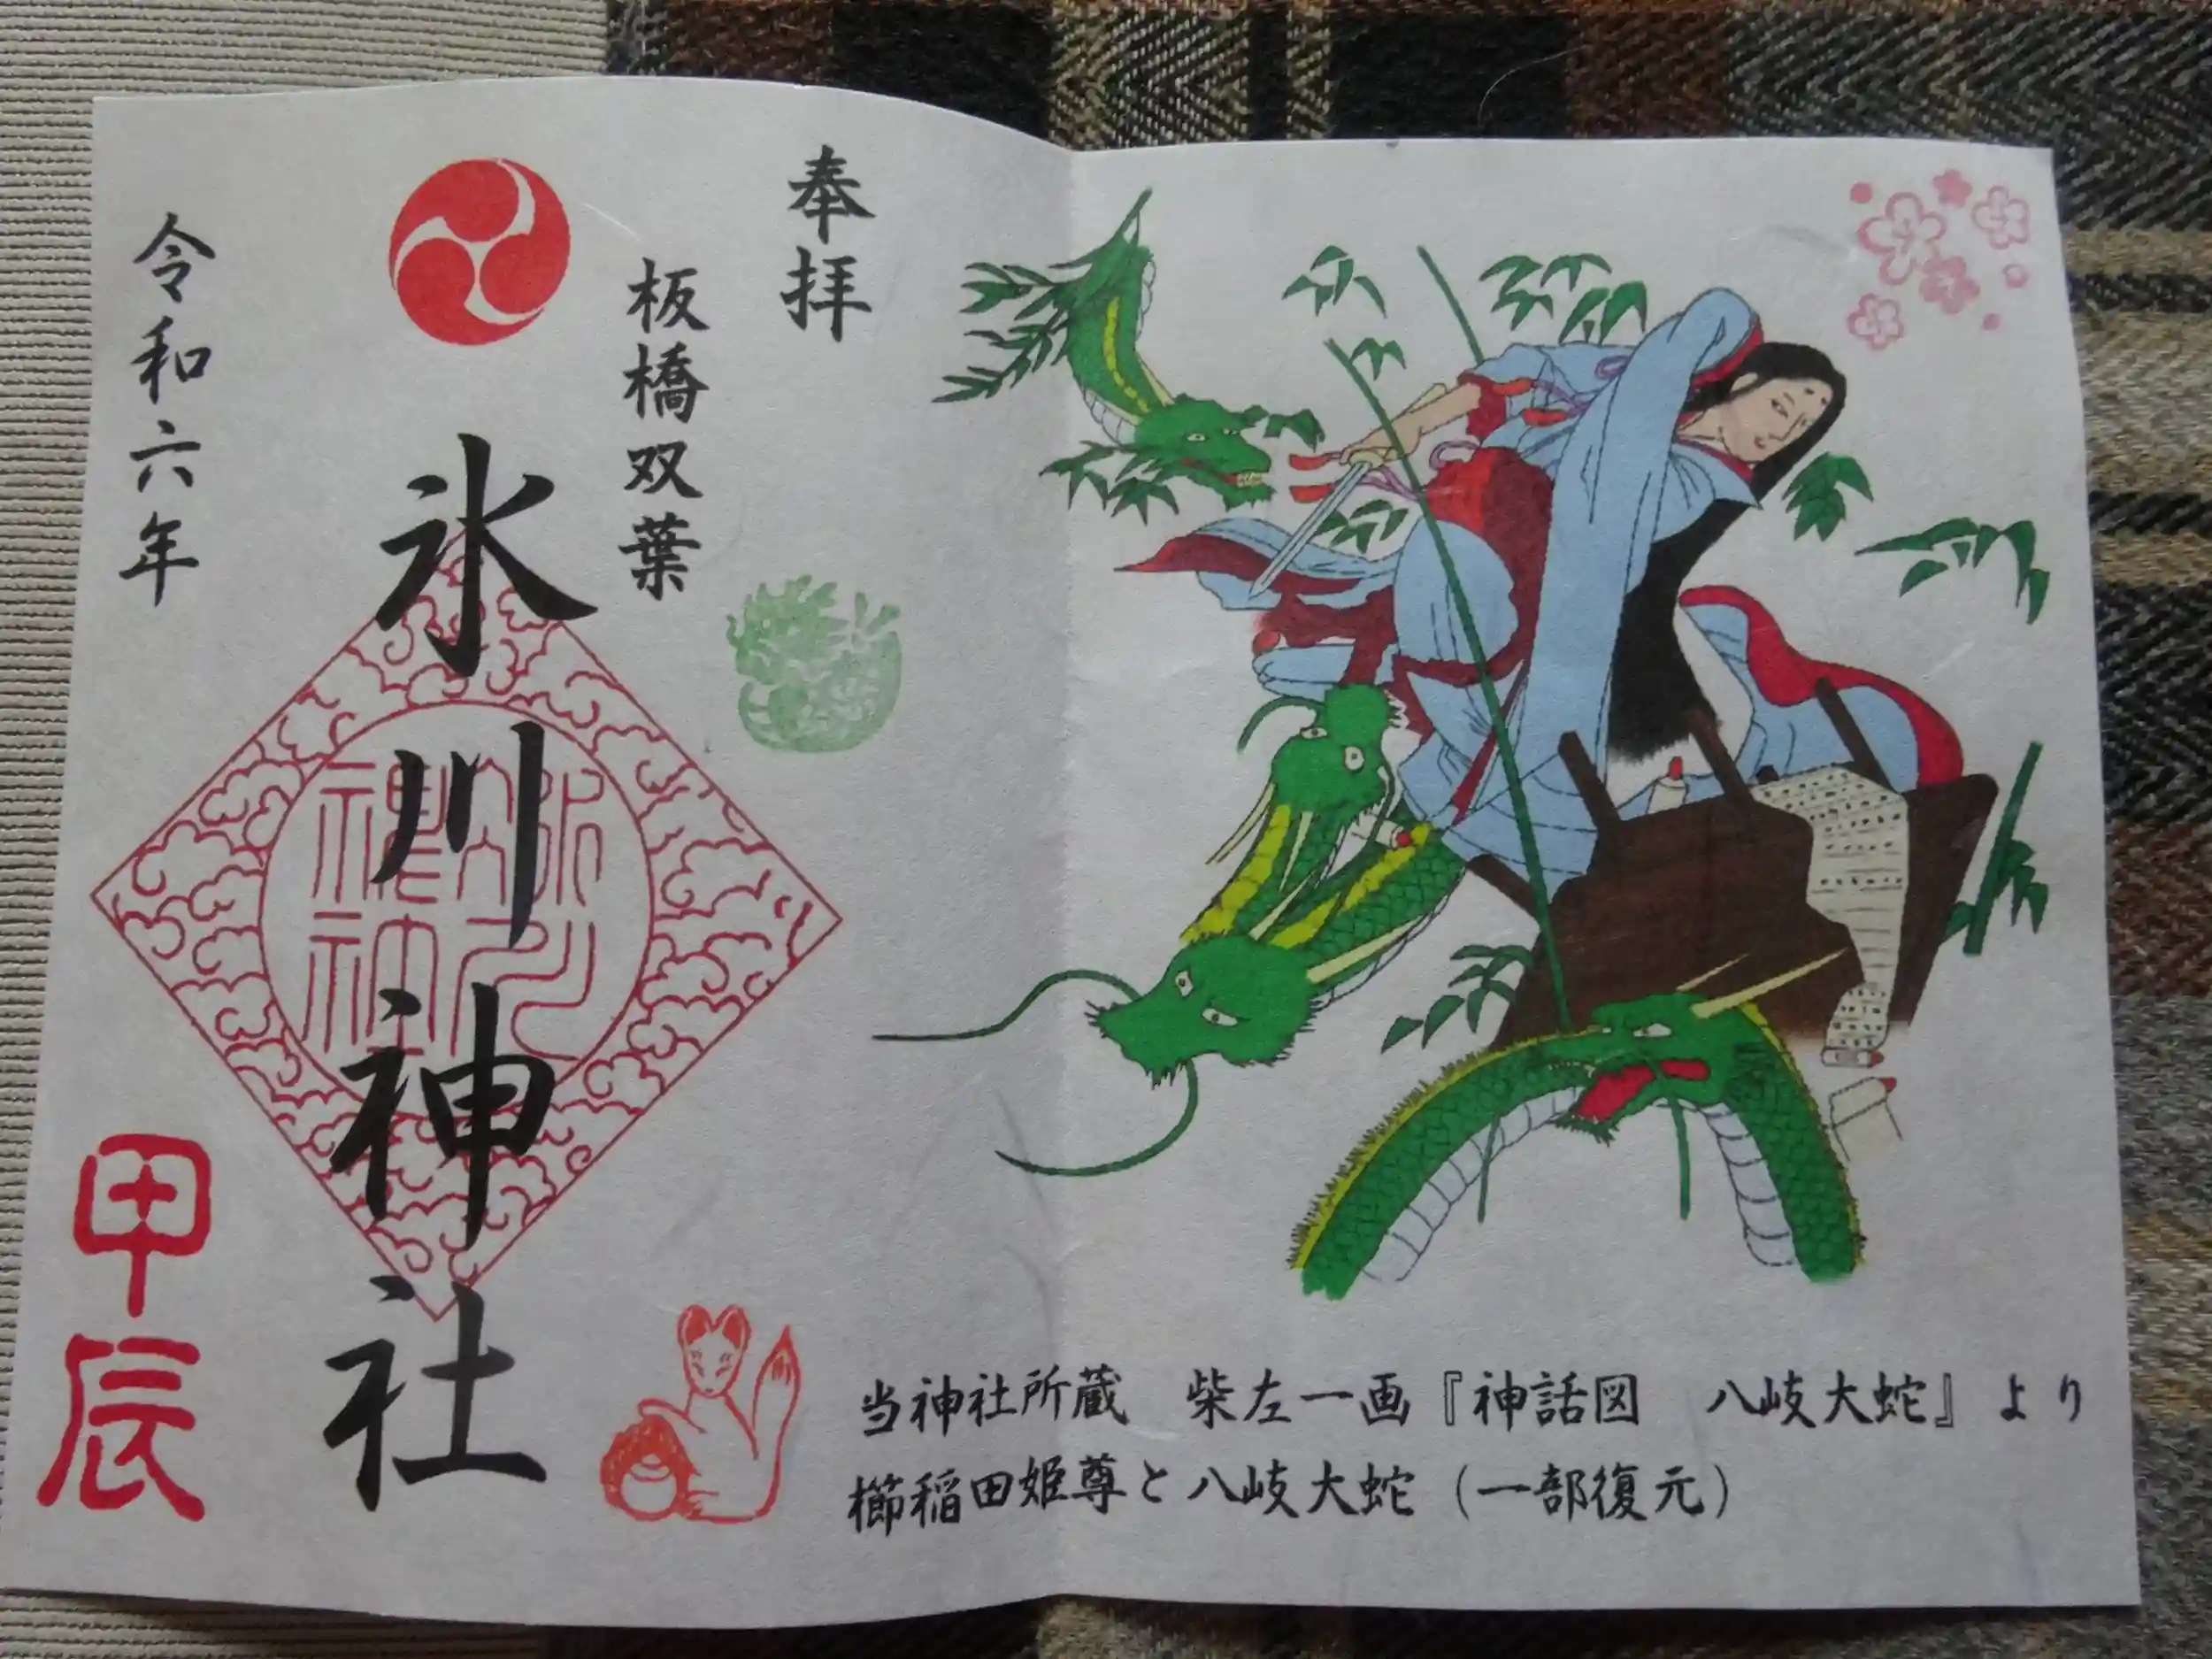 奉拝
板橋双葉
氷川神社
令和六年
甲辰
当神社所蔵 柴左一画『神話図 八岐大蛇』より
櫛稲田姫尊と八岐大蛇（一部復元）